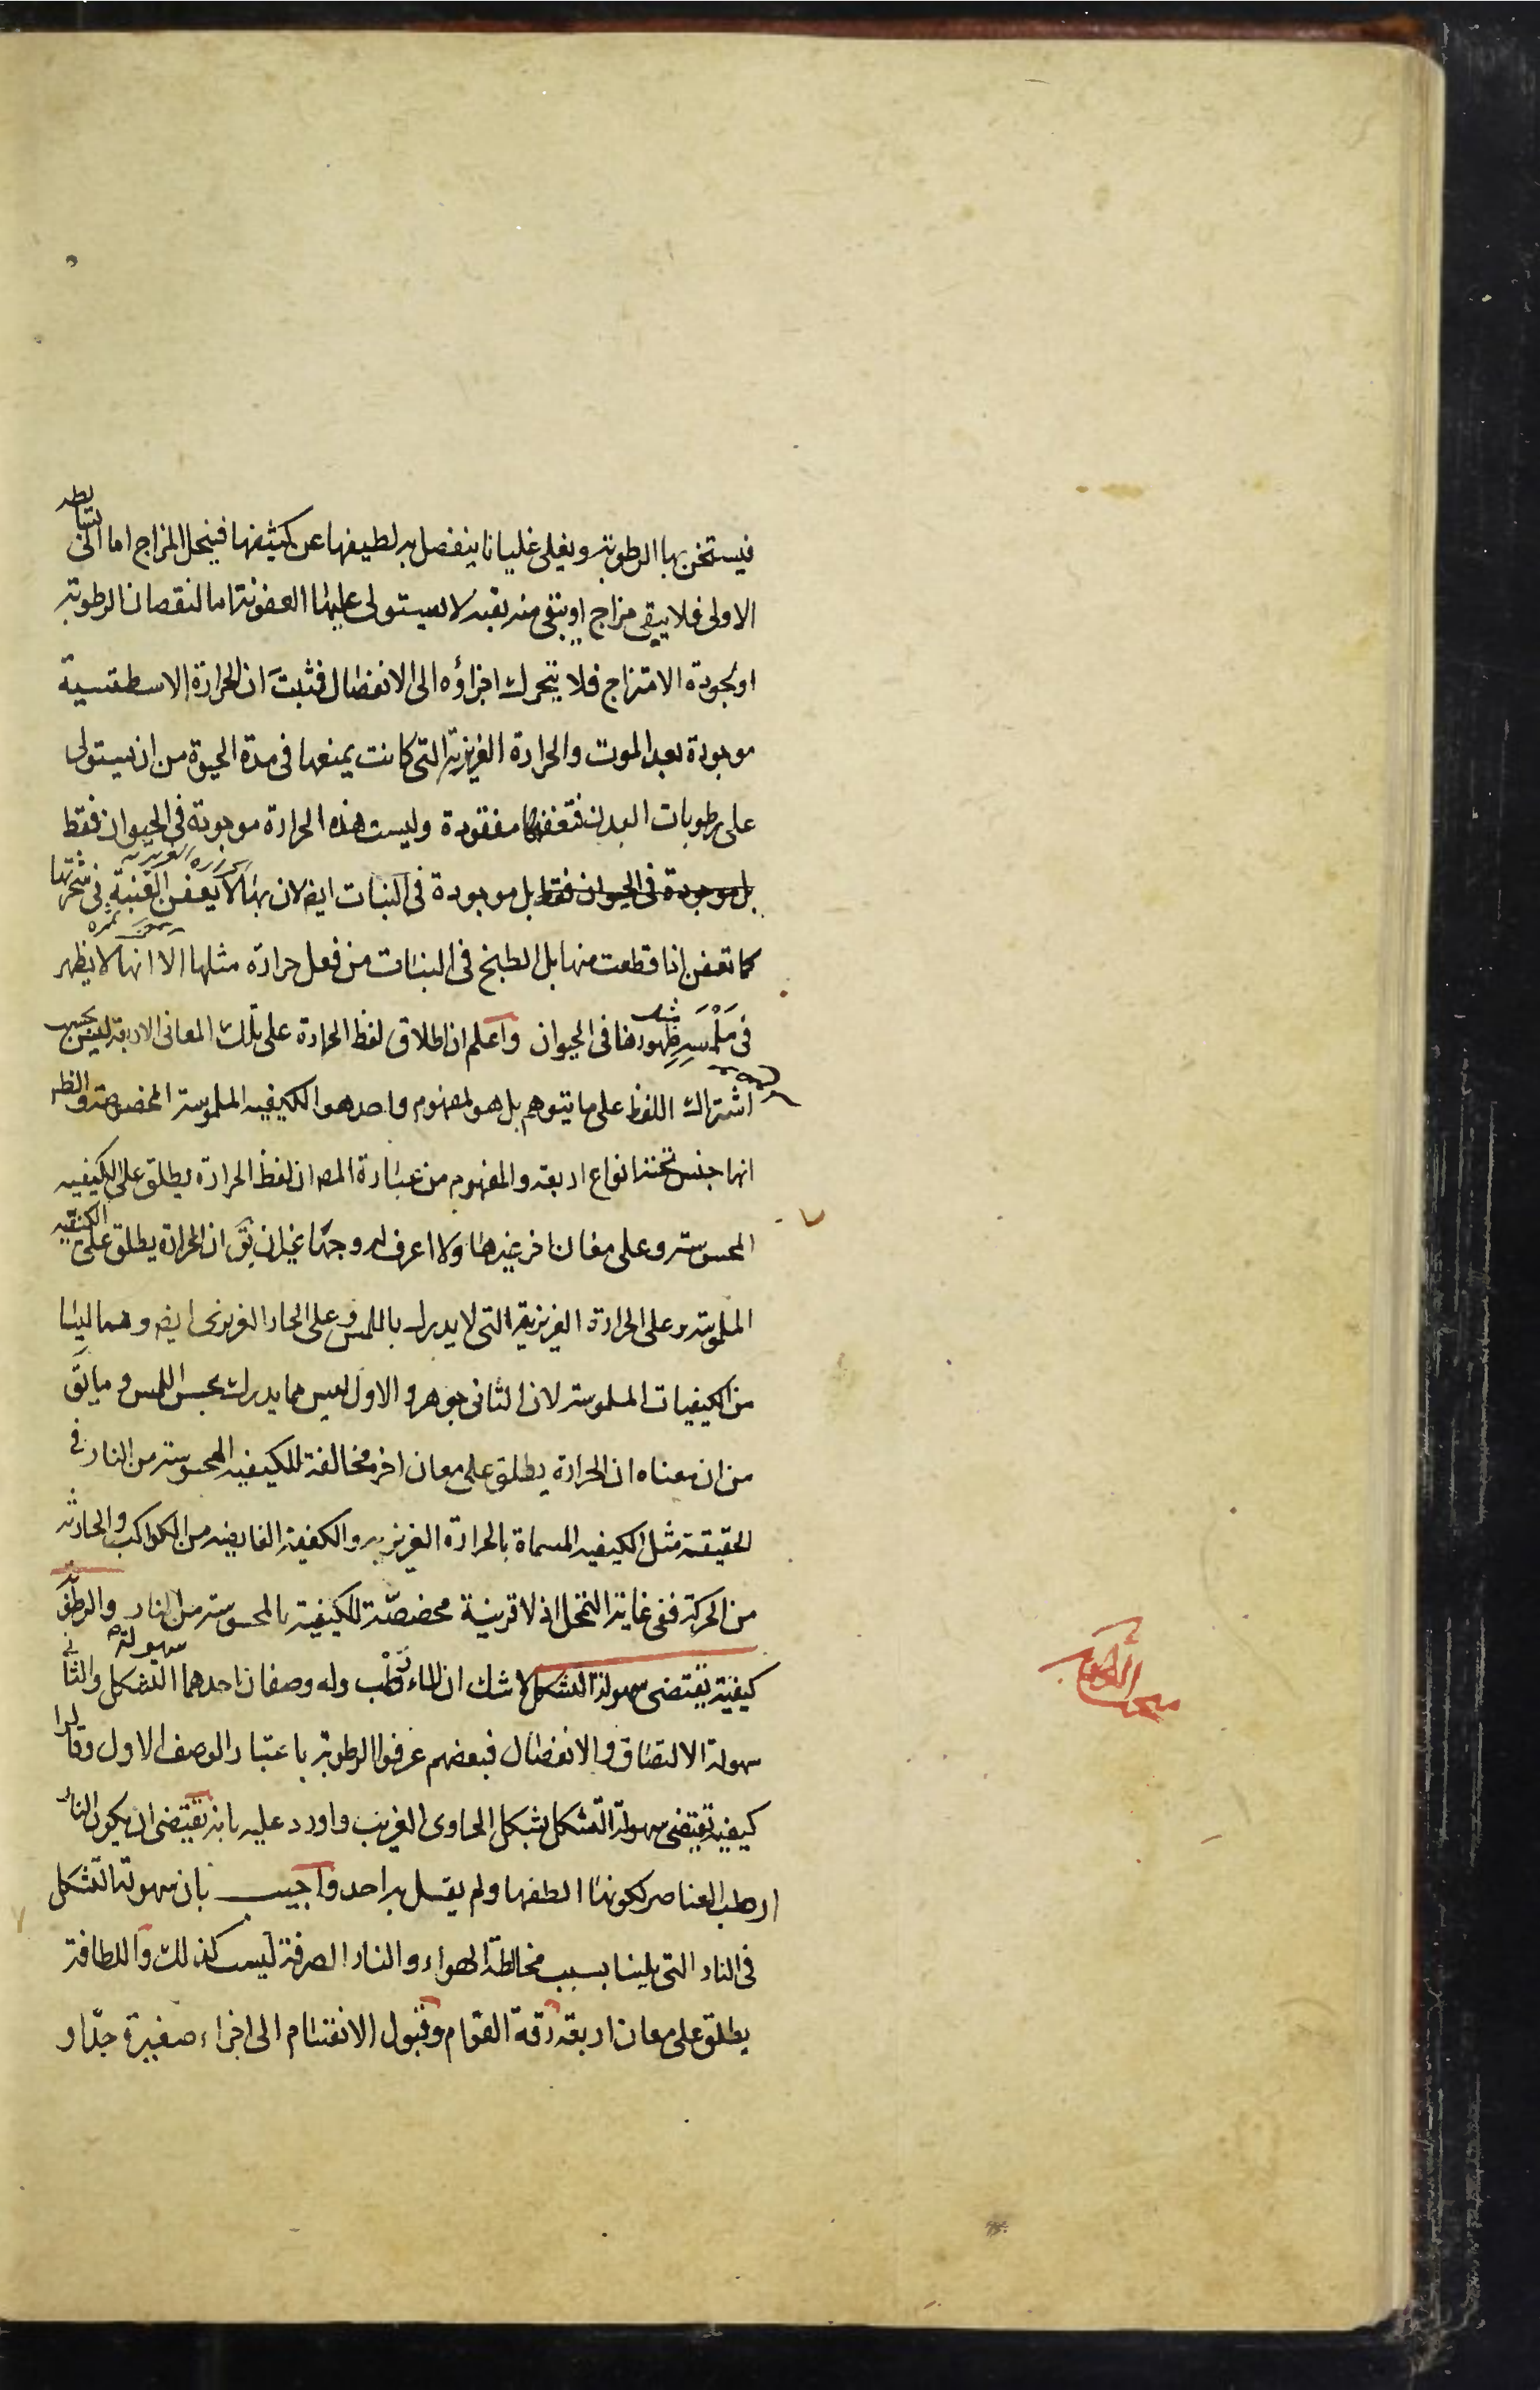 فيستخن بها الرطوبة ويغلى غليانا ينفصل به لطيفها عن كثيفها فينحل المزاج اما الى بسائطه
الاولى فلا يبقى مزاج او يبقى منه بقية لا يستولى عليها العفونة اما لنقصان الرطوبة
او لجودة الامتزاج فلا يتحرك اجزاؤه الى الانفصال فثبت ان الحرارة الاسطقسية
موجودة بعد الموت والحرارة الغريزية التى كانت يمنعها فى مدة الحيوة من ان يستولى
على رطوبات البدن فتعفنها مفقودة وليست هذه الحرارة موجودة فى الحيوان فقط
بل موجودة فى الحيوان فقط بل موجودة فى النبات ايض لان بها لا يعفن العنبة فى شجرتها
الحرارة الغريزية
كما تعفن اذا قطعت منها بل الطبخ فى النبات من فعل حرارة مثلها الا انها لا يظهر
فى مَلْمَسَه ظهورها فى الحيوان واعلم ان اطلاق لفظ الحرارة على تلك المعانى الاربعة ليس بحسب
اشتراك اللفظ على ما يتوهم بل هو لمفهوم واحد هو الكيفية الملموسة المخصوصة والظ
انها جنس تحتها انواع اربعة والمفهوم من عبارة المص ان لفظ الحرارة يطلق على الكيفية
المحسوسة وعلى معان اخر غيرها ولا اعرف له وجها غير ان يق ان الحرارة يطلق على الكيفية
الملموسة وعلى الحرارة الغريزية التى لا يدرك باللمس وعلى الحار الغريزى ايض وهما ليسا
من الكيفيات الملموسة لان الثانى جوهر والاول ليس مما يدرك بحس اللمس وما يق
من ان معناه ان الحرارة يطلق على معان اخر مخالفة للكيفية المحسوسة من النار فى
الحقيقة مثل الكيفية المسماة بالحرارة الغريزية والكيفية الفايضة من الكواكب والحادثة
من الحركة ففى غاية التمحل اذ لا قرينة مخصصة للكيفية بالمحسوسة من النار والرطوبة
كيفية يقتضى سهولة التشكل لا شك ان الماء رَطْب وله وصفان احدهما سهولة التشكل والثانى
سهولة الالتصاق والانفصال فبعضهم عرفوا الرطوبة باعتبار الوصف الاول وقالوا
كيفية تقتضى سهولة التشكل بشكل الحاوى الغريب واورد عليه بانه يقتضى ان يكون النار
ارطب العناصر لكونها الطفها ولم يقل به احد واجيب بان سهولة التشكل
فى النار التى يلينا بسبب مخالطة الهواء والنار الصرفة ليست كذلك واللطافة
يطلق على معان اربعة رقة القوام وقبول الانقسام الى اجزاء صغيرة جدّا و
مبحث الرطوبة